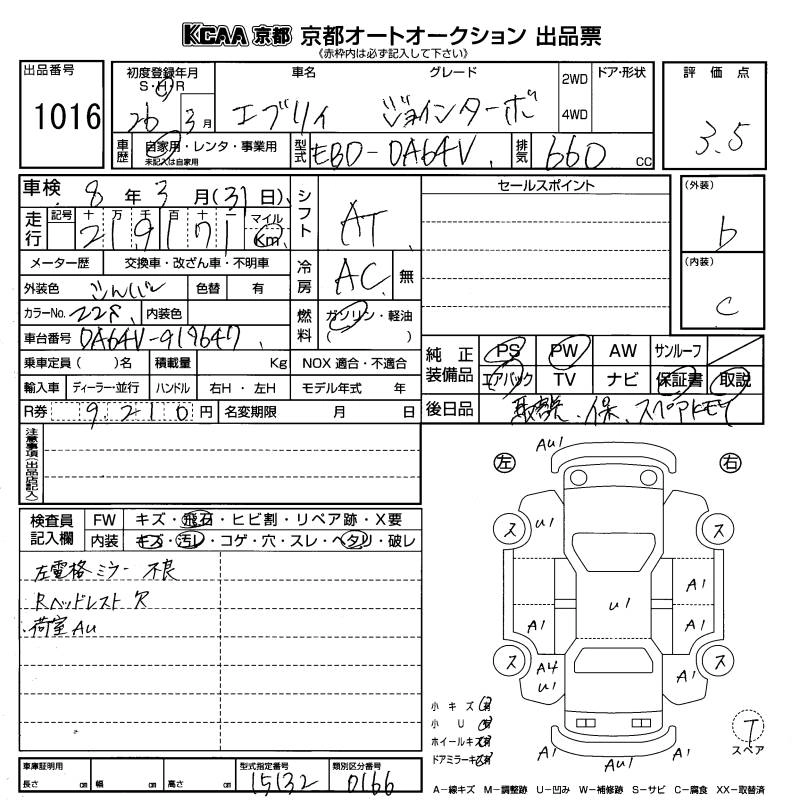 KCAA 京都 京都オートオークション 出品票
《赤枠内は必ず記入して下さい》
出品番号 1016
初度登録年月 S・H・R 26 3月
車名 エブリィ グレード ジョインターボ
2WD 4WD ドア・形状
評価点 3.5
車歴 自家用・レンタ・事業用 未記入は自家用
型式 EBD-DA64V
排気 660 cc
車検 8年3月(31日)
走行 記号 十万千百十一 219170 マイル Km
シフト AT
セールスポイント
(外装) b
(内装) C
メーター歴 交換車・改ざん車・不明車
冷房 AC 無
外装色 シルバー 色替 有
カラーNo. Z2S 内装色
燃料 ガソリン・軽油 ( )
車台番号 DA64V-919647
乗車定員( )名 積載量 Kg NOX 適合・不適合
純正装備品 PS PW AW サンルーフ
エアバック TV ナビ 保証書 取説
輸入車 ディーラー・並行 ハンドル 右H・左H モデル年式 年
R券 9210円 名変期限 月 日
後日品 取説、保、スペアKEY
注意事項(出品店記入)
検査員記入欄
FW キズ・飛石・ヒビ割・リペア跡・X要
内装 キズ・汚レ・コゲ・穴・スレ・ヘタリ・破レ
左電格ミラー不良
Rヘッドレスト欠
荷室AU
左 右
AU1
ス ス
U1
U1
A1
A1
A1
ス ス
A4
U1
A1
A1 A1 A1
T
スペア
小キズ 有
小U 有
ホイールキズ 有
ドアミラーキズ 有
車庫証明用 長さ cm 幅 cm 高さ cm
型式指定番号 15132
類別区分番号 0166
A−線キズ M−調整跡 U−凹み W−補修跡 S−サビ C−腐食 XX−取替済